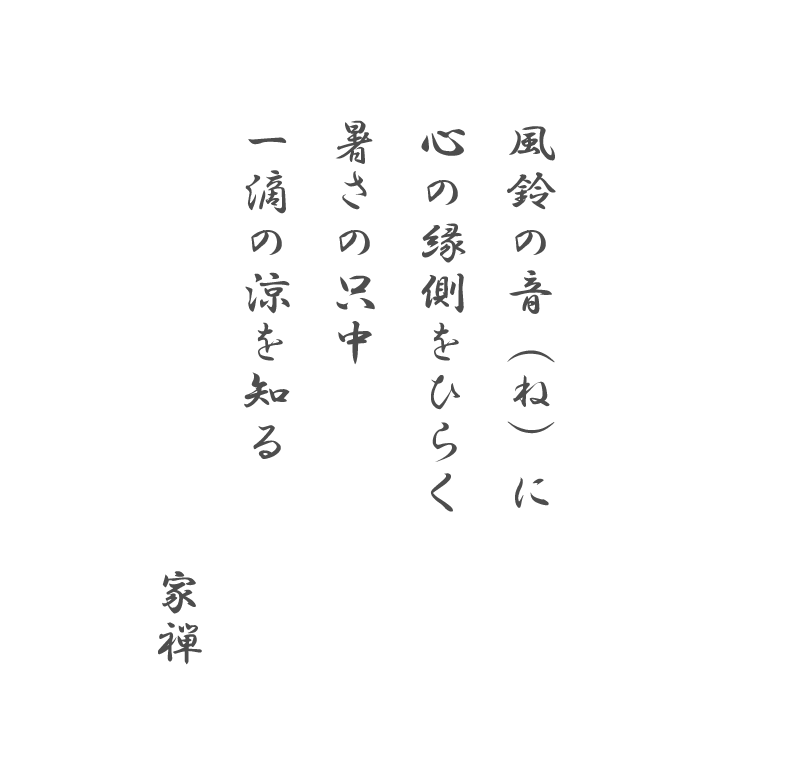 風鈴の音（ね）に
心の縁側をひらく
暑さの只中
一滴の涼を知る
家禅